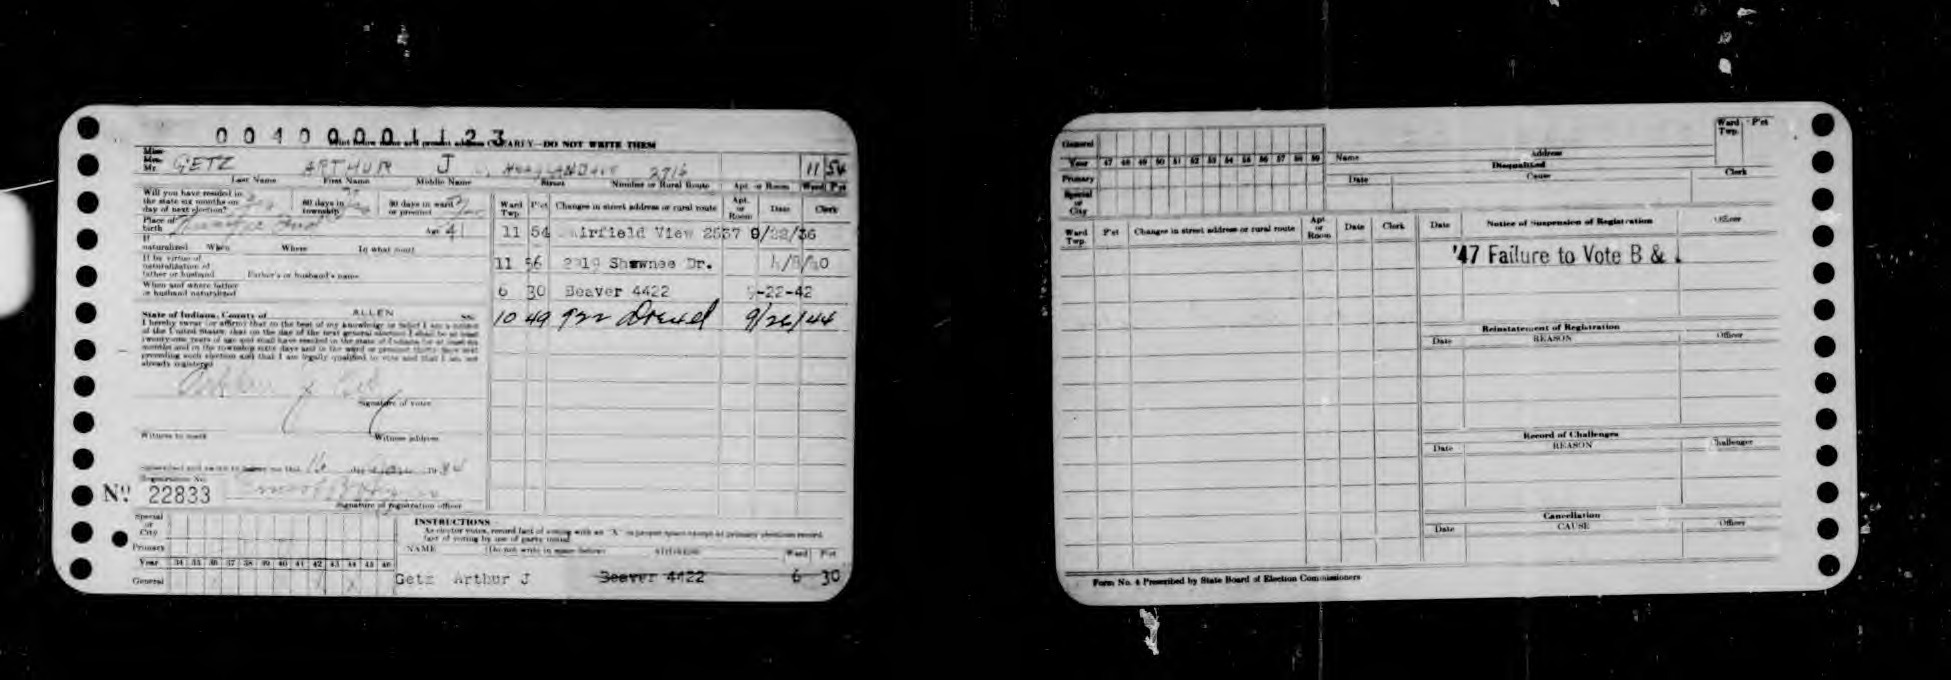 0040000 1123
Print below name and present address CLEARLY—DO NOT WRITE THEM
Miss
Mrs.
Mr. GETZ ARTHUR J HOAGLAND AVE 2716 11 54
Last Name First Name Middle Name Street Number or Rural Route Apt. or Room Ward Pct
Will you have resided in
the state six months on
day of next election? 60 days in
township 30 days in ward
or precinct
Place of
birth Age 41
If
naturalized When Where In what court
If by virtue of
naturalization of
father or husband Father's or husband's name
When and where father
or husband naturalized
State of Indiana, County of ALLEN ss:
I hereby swear (or affirm) that to the best of my knowledge or belief I am a citizen
of the United States; that on the day of the next general election I shall be at least
twenty-one years of age and shall have resided in the state of Indiana for at least six
months and in the township sixty days and in the ward or precinct thirty days next
preceding such election and that I am legally qualified to vote and that I am not
already registered
Arthur J Getz
Signature of voter
Witness to mark Witness address
Subscribed and sworn to before me this 16 day 19 34
Registration No.
No. 22833
Signature of registration officer
Ward
Twp. P'ct Changes in street address or rural route Apt.
or
Room Date Clerk
11 54 Fairfield View 2537 9/22/36
11 56 2919 Shawnee Dr. 4/8/40
6 30 Beaver 4422 -22-42
10 49 922 Drexel 9/26/44
Special
or
City
Primary
Year 34 35 36 37 38 39 40 41 42 43 44 45 46
General X
INSTRUCTIONS
As elector votes, record fact of voting with an "X" in proper space except at primary elections record
fact of voting by use of party initial
NAME (Do not write in space below) ADDRESS Ward P'ct
Getz Arthur J Beaver 4422 6 30
General
Year 47 48 49 50 51 52 53 54 55 56 57 58 59
Primary
Special
or
City
Name Address Ward
Twp. P'ct
Disqualified
Date Cause Clerk
Ward
Twp. P'ct Changes in street address or rural route Apt
or
Room Date Clerk
Date Notice of Suspension of Registration Officer
'47 Failure to Vote B &
Reinstatement of Registration
Date REASON Officer
Record of Challenges
Date REASON Challenger
Cancellation
Date CAUSE Officer
Form No. 4 Prescribed by State Board of Election Commissioners